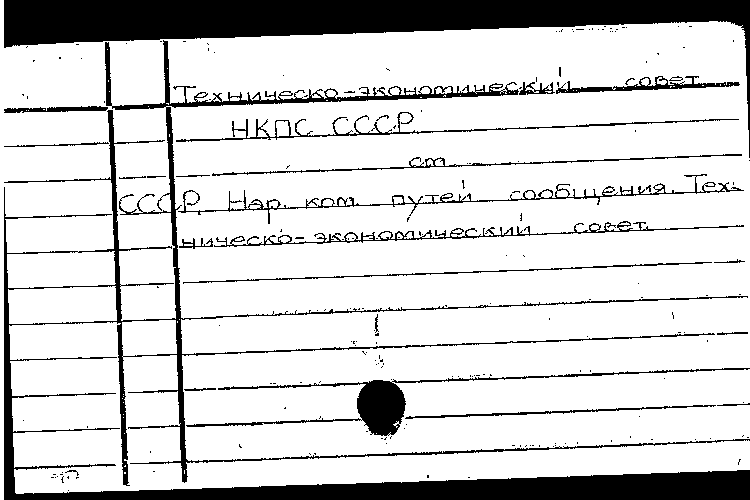 Техническо-экономический совет
НКПС СССР
см.
СССР. Нар. ком. путей сообщения. Тех-
ническо-экономический совет.